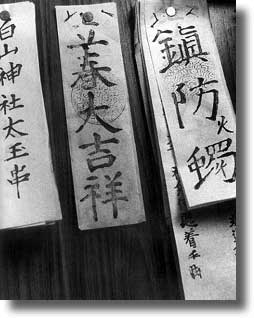 鎮防火燭
立春大吉祥
白山神社太玉串